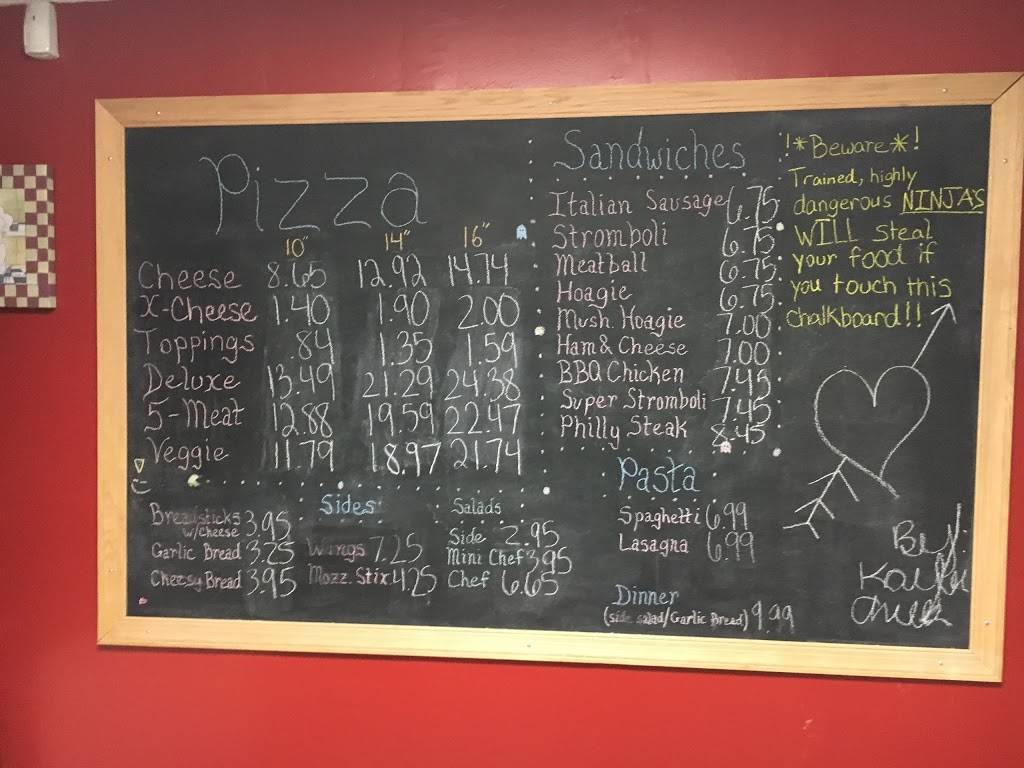 Pizza
10" 14" 16"
Cheese 8.65 12.92 14.74
X-Cheese 1.40 1.90 2.00
Toppings .84 1.35 1.59
Deluxe 13.49 21.29 24.38
5-Meat 12.88 19.59 22.47
Veggie 11.79 18.97 21.74
Sandwiches
Italian Sausage 6.75
Stromboli 6.75
Meatball 6.75
Hoagie 6.75
Mush. Hoagie 7.00
Ham & Cheese 7.00
BBQ Chicken 7.45
Super Stromboli 7.45
Philly Steak 8.45
!*Beware*!
Trained, highly
dangerous NINJA'S
WILL steal
your food if
you touch this
chalkboard!!
Sides
Breadsticks
w/cheese 3.95
Garlic Bread 3.25
Cheesy Bread 3.95
Wings 7.25
Mozz. Stix 4.25
Salads
Side 2.95
Mini Chef 3.95
Chef 6.65
Pasta
Spaghetti 6.99
Lasagna 6.99
Dinner
(side salad/Garlic Bread) 9.99
By: